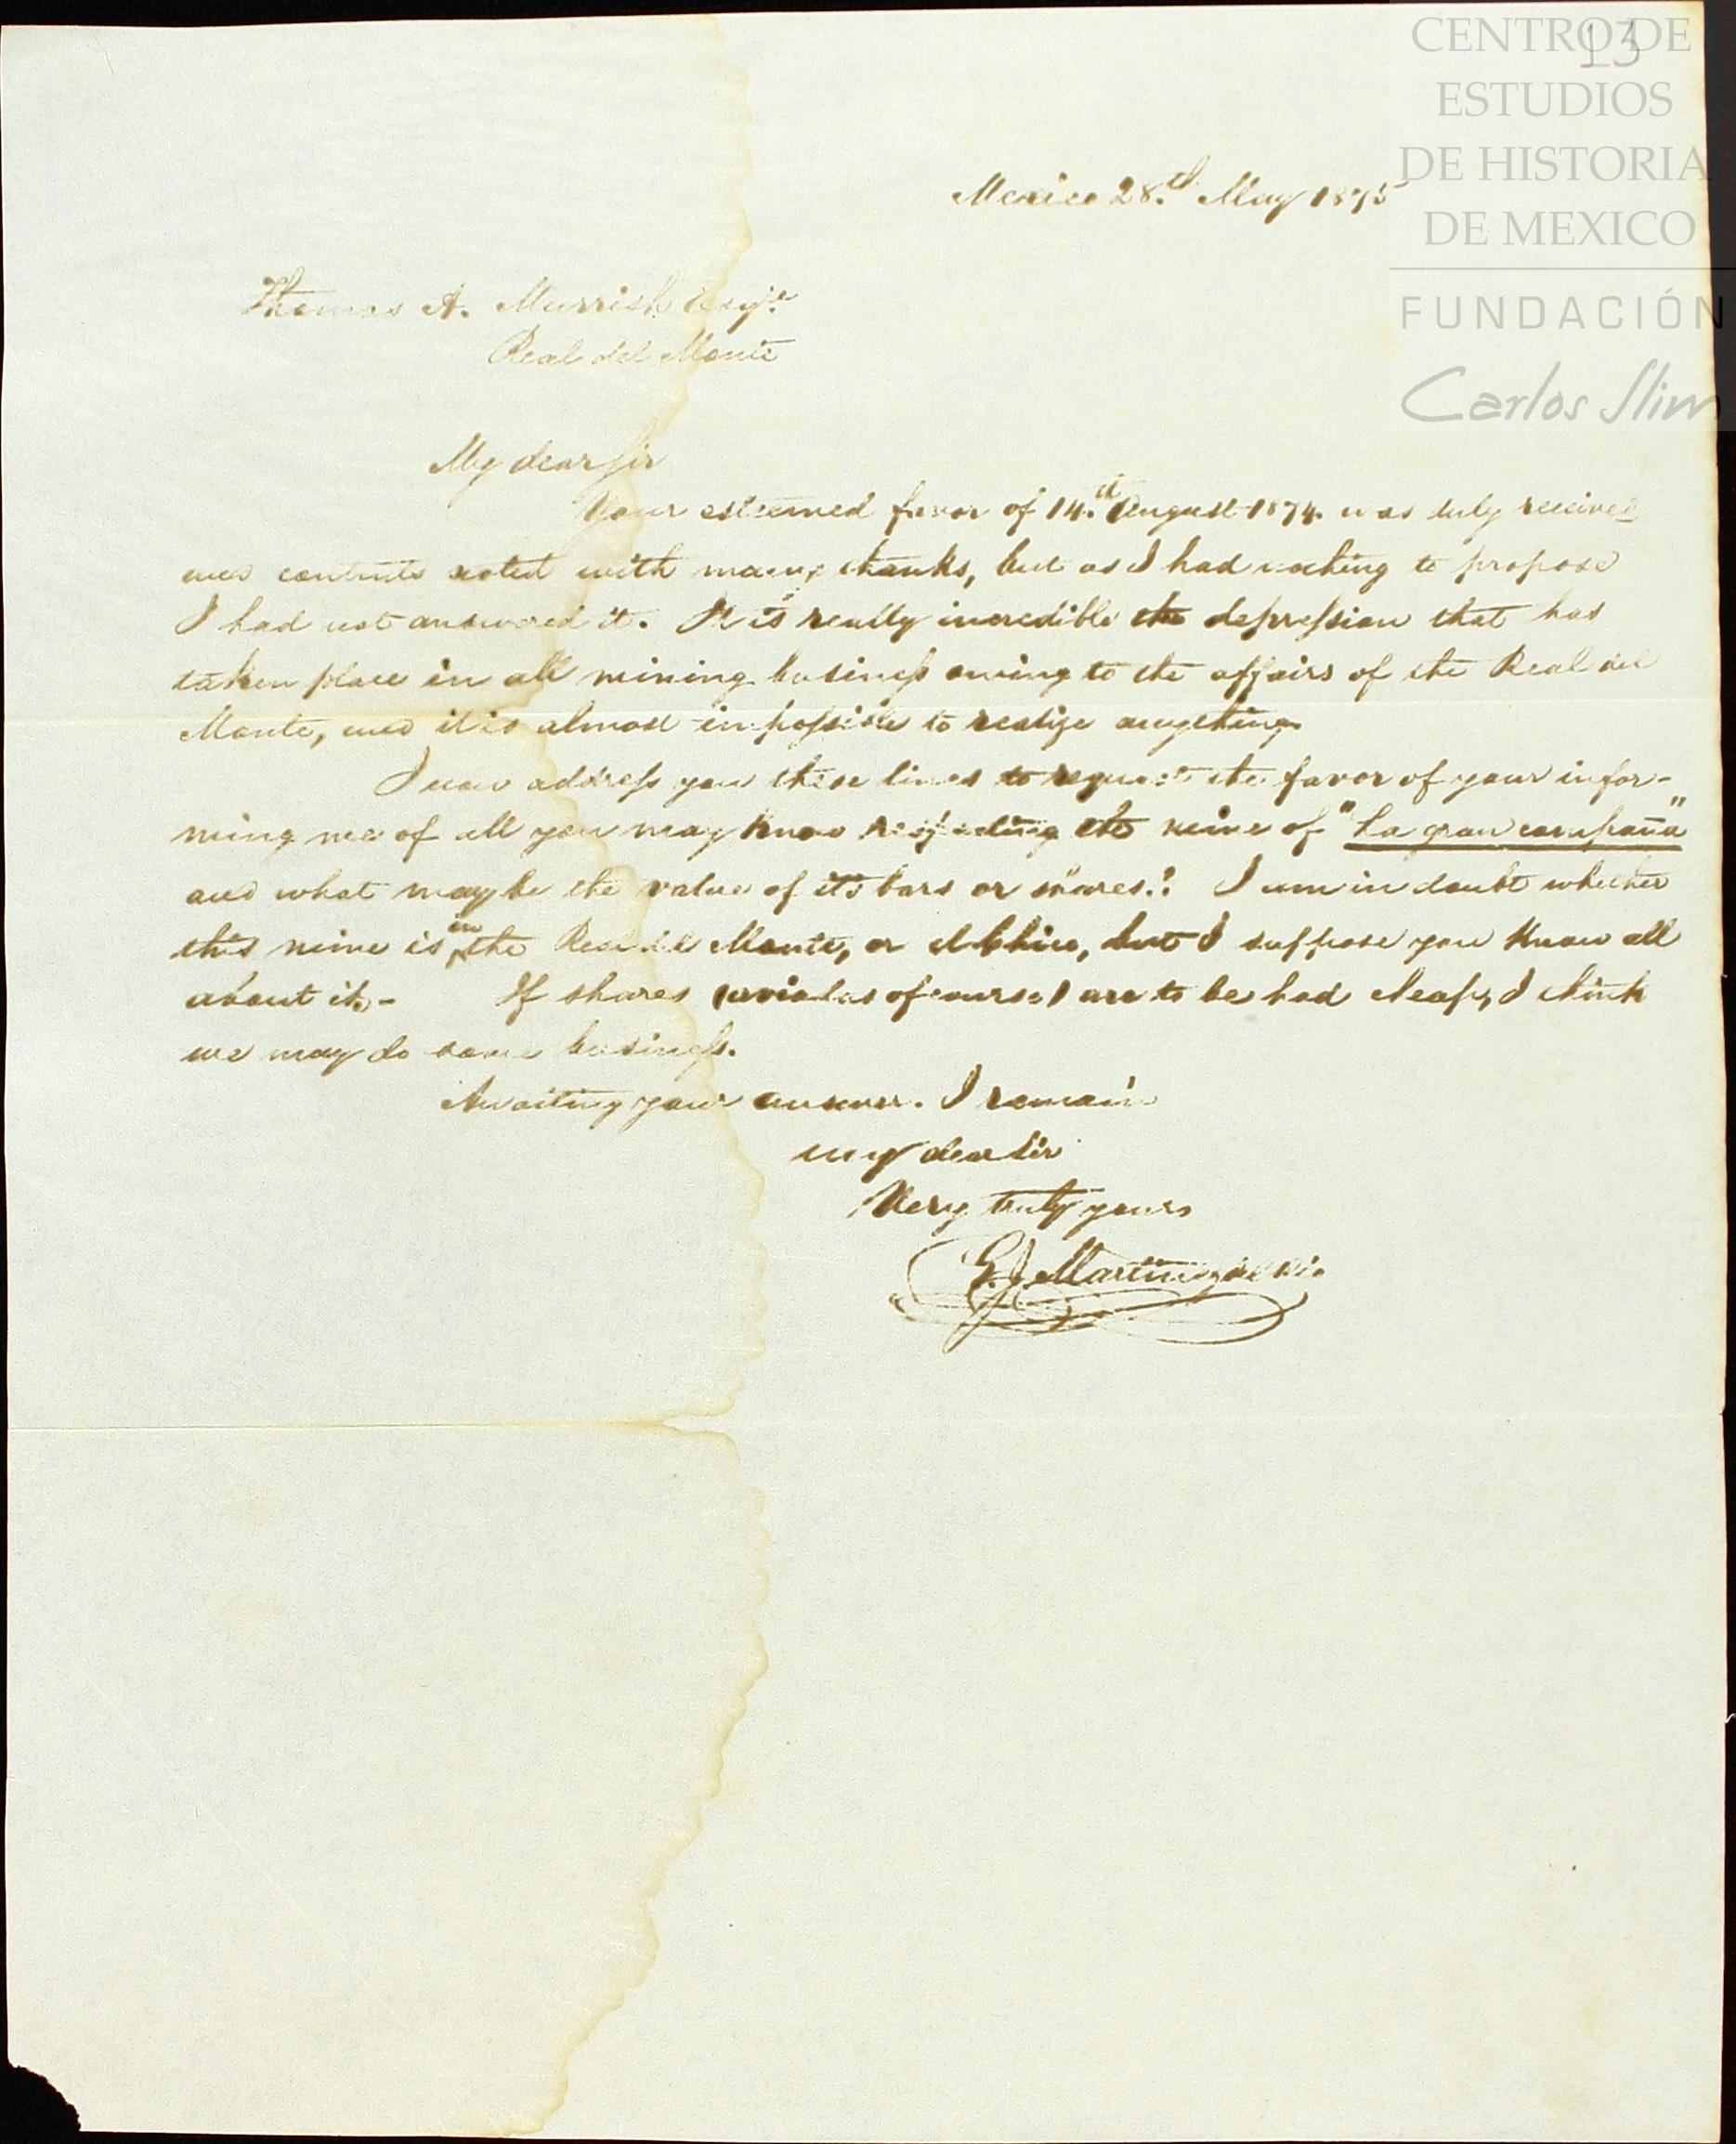 13
CENTRO DE
ESTUDIOS
DE HISTORIA
DE MEXICO
FUNDACIÓN
Carlos Slim
Mexico 28.th May 1875
Thomas A. Murrish Esqre
Real del Monte
My dear Sir
Your esteemed favor of 14.th August 1874. was duly received
and contents noted with many thanks, but as I had nothing to propose
I had not answered it. It is really incredible the depression that has
taken place in all mining business owing to the affairs of the Real del
Monte, and it is almost impossible to realize anything.
I now address you these lines to request the favor of your infor-
ming me of all you may know respecting the mine of "La gran compaña"
and what may be the value of its bars or shares.: I am in doubt whether
this mine is in the Real del Monte, or el Chico, but I suppose you know all
about it.- If shares (aviadas of course) are to be had cheap, I think
we may do some business.
Awaiting your answer. I remain
my dear Sir
Very truly yours
G. J. Martinez del Rio